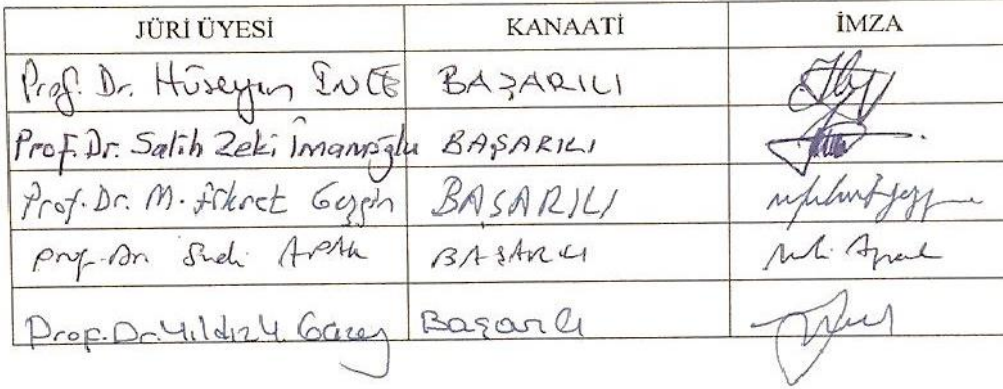 JÜRİ ÜYESİ KANAATİ İMZA
Prof. Dr. Hüseyin İNCE BAŞARILI
Prof. Dr. Salih Zeki İmamoğlu BAŞARILI
Prof. Dr. M. Fikret Gezgin BAŞARILI
Prof. Dr. Sudi APAK BAŞARILI
Prof. Dr. Yıldız Y. Başarılı